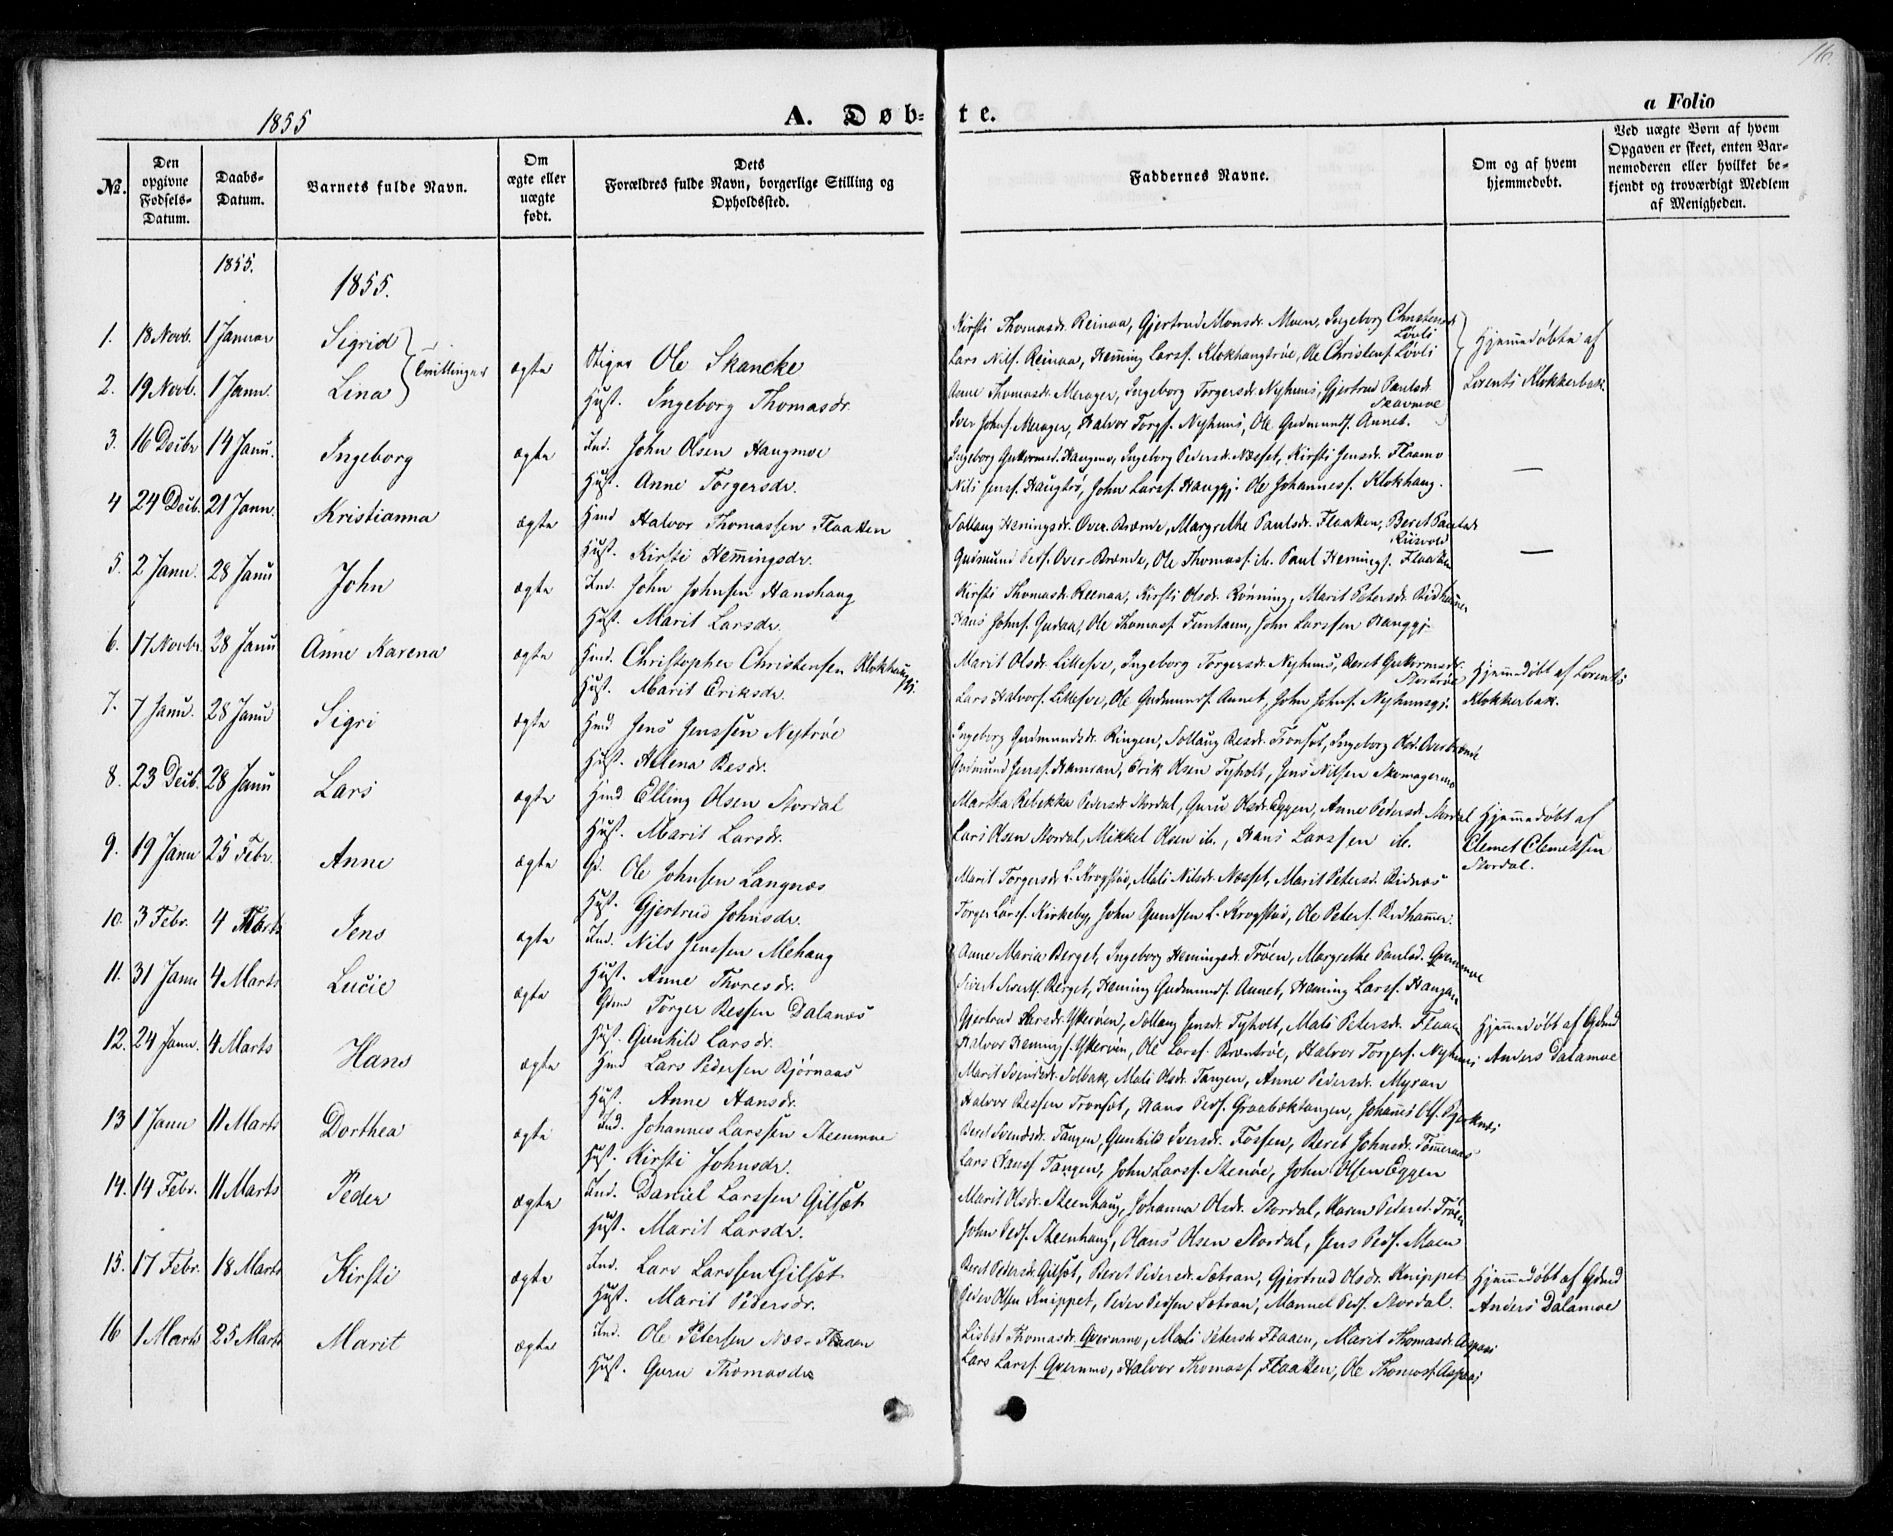 16.
1855
A. Døb-te.
a Folio
No.
Den opgivne Fødsels-Datum.
Daabs-Datum.
Barnets fulde Navn.
Om ægte eller uægte født.
Dets Forældres fulde Navn, borgerlige Stilling og Opholdssted.
Faddernes Navne.
Om og af hvem hjemmedøbt.
Ved uægte Børn af hvem Opgaven er skeet, enten Barnemoderen eller hvilket bekjendt og troværdigt Medlem af Menigheden.
1855.
1855.
1. 18 Novb. 1 Januar Sigrid } Tvillinger ægte Stiger Ole Skancke
Kirsti Thomasdr. Reinaa, Gjertrud Monsdr. Moen, Ingeborg Christensdr Løvli
Lars Nils. Reinaa, Hemming Larss. Klokhaugtrøe, Ole Christens. Løvli
Hjemmedøbte af Lorents Klokkerbak
2. 19 Novb. 1 Janu. Lina Hust. Ingeborg Thomasdr.
Anne Thomasdr. Merager, Ingeborg Torgersdr. Nyhuus, Gjertrud Paulsdr. Skavmoe
Iver Johns. Merager, Halvor Torgs. Nyhuus, Ole Gudmunds. Annet.
3. 16 Decbr 14 Janu. Ingeborg ægte Ind. John Olsen Haugmoe
Hust. Anne Torgersdr.
Ingeborg Guttormsd. Haugmo, Ingeborg Pedersdr. Næsset, Kirsti Jensdr. Flaamo
Nils Jenss. Haugtrø, John Larss. Hauggj. Ole Johanness. Klokhaug.
—
4 24 Decb. 21 Janu. Kristianna ægte Hmd Halvor Thomassen Flaaken
Hust. Kirsti Hemmingsdr.
Sollaug Hemingsdr. Over-Brænde, Margrethe Paulsdr. Flaaken, Beret Paulsdr
Gudmund Peds. Over-Brænde, Ole Thomass. ib. Paul Hemings. Flaaken
—
5. 2 Janu. 28 Janu John ægte Ind. John Johnsen Hanshaug
Hust. Marit Larsdr.
Kirsti Thomasdr. Reenaa, Kirsti Olsdr. Rønning, Marit Petersdr. Bidhammer
Hans Johns. Gudaa, Ole Thomass. Funtaun, John Larssen Hauggj.
6. 17 Novbr 28 Janu Anne Karena ægte Hmd. Christopher Christensen Klokhaug gj.
Hust. Marit Eriksdr.
Marit Olsdr. Lillefve, Ingeborg Torgersdr. Nyhuus, Beret Guttormsdr.
Lars Halvors. Lillefve, Ole Gudmunds. Annet, John Johns. Nyhuusgj.
Hjemmedøbt af Lorents Klokkerbak.
7. 7 Janu. 28 Janu Sigri ægte Hmd Jens Jenssen Nytrøe
Hust. Helena Besdr.
Ingeborg Gudmundsdr. Ringen, Sollaug Besdr. Tronset, Ingeborg Olsd. Overbrænd
Gudmund Jenss. Hamran, Erik Olsen Tyholt, Jens Nilsen Skomagermo
8. 23 Decb. 28 Janu Lars ægte Hmd Elling Olsen Stordal
Hust. Marit Larsdr.
Martha Rebekka Pedersdr. Stordal, Guru Olsdr. Eggen, Anne Pedersdr. Stordal
Lars Olsen Stordal, Mikkel Olsen ib., Hans Larssen ib.
Hjemmedøbt af Clemet Clemetsen Stordal.
9. 19 Janu 25 Febr. Anne ægte Gd. Ole Johnsen Langnæs
Hust. Gjertrud Johnsdr.
Marit Torgersdr. L. Krogstad, Mali Nilsdr. Næsset, Marit Petersd. Bidnæs
Torger Larss. Kirkeby, John Gundsen L. Krogstad, Ole Peters. Bidhammer.
10. 3 Febr. 4 Marts Jens ægte Ind. Nils Jenssen Mehaug
Hust. Anne Thoresdr.
Anne Maria Berget, Ingeborg Hemingsdr. Trøen, Margrethe Paulsd. Qvernmoe
Sivert Siverts. Berget, Heming Gudmunds. Annet, Heming Larss. Haugan
11. 31 Janu 4 Marts Lucie ægte Gmd Torger Bessen Dalanæs
Hust. Gunhild Larsdr.
Gjertrud Larsdr. Ytterøen, Sollaug Jensdr. Tyholt, Mali Petersdr. Flaan
Halvor Hemings. Ytterøen, Ole Larss. Bræntrøe, Halvor Torgers. Nyhuus
Hjemmedøbt af Gdmd Anders Dalamoe
12. 24 Janu. 4 Marts Hans ægte Hmd Lars Pedersen Bjørnaas
Hust. Anne Hansdr.
Marit Svendsdr. Solbak, Mali Olsdr. Tangen, Anne Pedersdr. Myran
Halvor Bessen Tronset, Hans Peds. Graabæktangen, Johannes Ols.
13 1 Janu 11 Marts Dorthea ægte Ind. Johannes Larssen Steenmoe
Hust. Kirsti Johnsdr.
Beret Svendsdr. Tangen, Gunhild Iversdr. Fossen, Beret Johnsdr. Tømmeraas
Lars Hanss. Tangen, John Larss. Stenøe, John Olsen Eggen
14. 14 Febr. 11 Marts Peder ægte Ind. Daniel Larssen Gilset
Hust. Marit Larsdr.
Marit Olsdr. Steenhaug, Johanna Olsdr. Stordal, Karen Pedersd. Trøen
John Peds. Steenhaug, Hans Olsen Stordal, Jens Peds. Moen
15. 17 Febr. 18 Marts Kirsti ægte Ind. Lars Larssen Gilset
Hust. Marit Pedersdr.
Beret Pedersdr. Gilset, Beret Pedersdr. Sætran, Gjertrud Olsdr. Knippet
Peder Olsen Knippet, Peder Pedsen Sætran, Manuel Peds. Stordal.
Hjemmedøbt af Gdmd Anders Dalamoe
16 1 Marts 25 Marts Marit ægte Ind. Ole Petersen Næs-Flaaen
Hust. Guru Thomasdr
Lisbet Thomasdr. Qvernmo, Mali Petersdr. Flaaen, Marit Thomasdr. Aspaas
Lars Larss. Qvernmo, Halvor Thomass. Flaaken, Ole Thomass. Aspaas